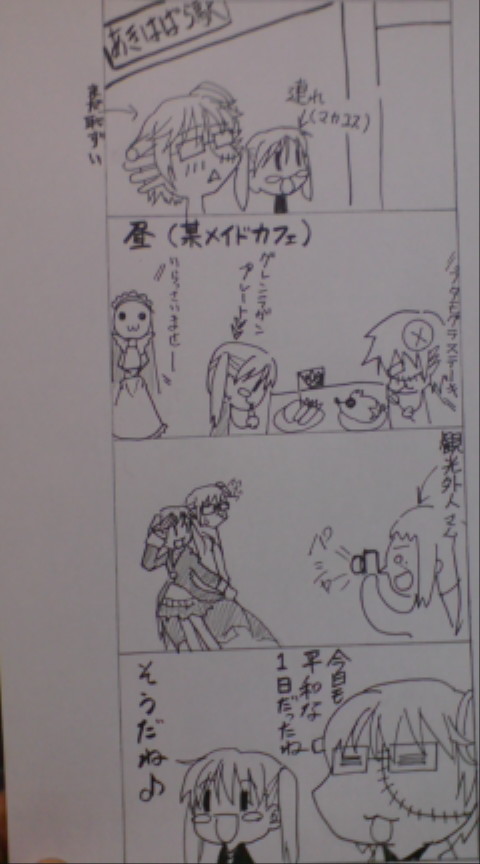 あきはばら駅
連れ
(マカコス)
素で恥ずい
昼 (某メイドカフェ)
いらっさいませー
グレンラガン
プレート
ステーキ
観光外人さん
パシャ
今日も
平和な
1日だったね
そうだね♪